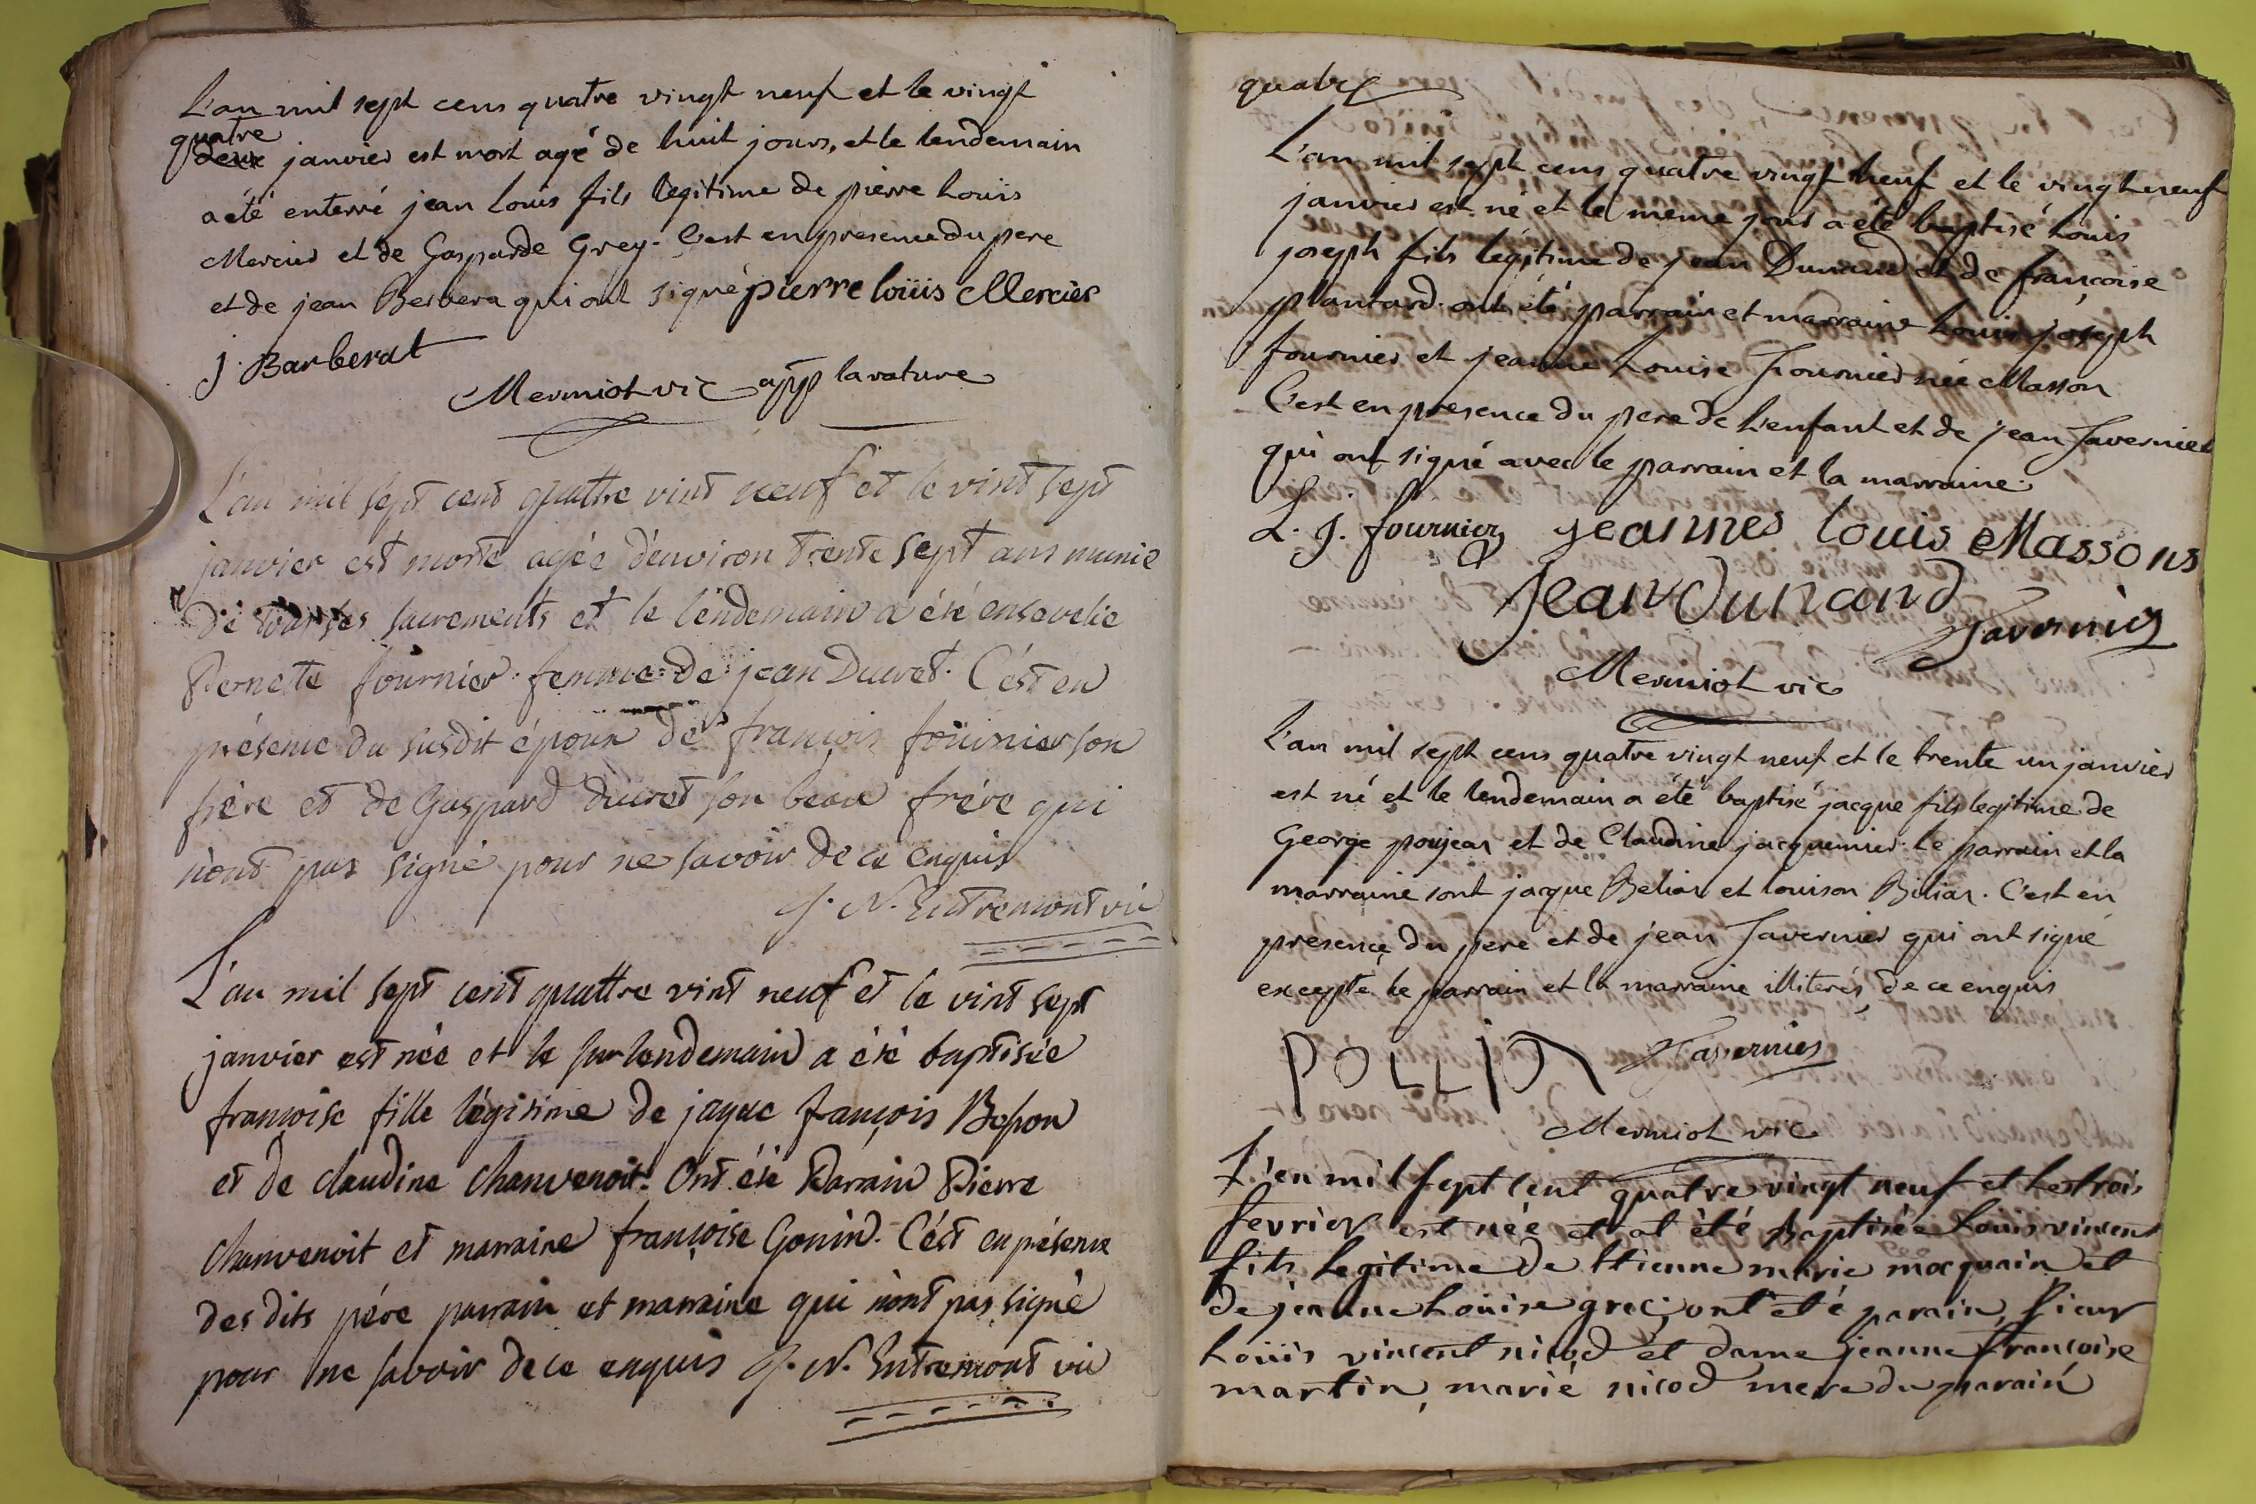 L'an mil sept cens quatre vingt neuf et le vingt
quatre
deux janvier est mort agé de huit jours, et le lendemain
a été enterré jean Louis fils legitime de pierre Louis
Mercier et de Gasparde Grey. C'est en presence du pere
et de jean Berbera qui ont signé pierre loüis Mercier
j. Barberat
Mermiot vic app la rature
L'an mil sept cent quattre vint neuf et le vint sept
janvier est morte agée d'environ trente sept ans munie
de tous ses sacrements et le lendemain a été ensevelie
Pernette fournier femme de jean Ducret. C'est en
présence du susdit époux de françois fournier son
frère et de Gaspard ducret son beau frére qui
n'ont pas signé pour ne savoir de ce enquis
j. N. Entremont vic
L'an mil sept cent quattre vint neuf et le vint sept
janvier est née et le surlendemain a été baptisée
françoise fille légitime de jaque françois Bosson
et de claudine chanvenoit. Ont été Parrain Pierre
chanvenoit et marraine françoise Gonin. C'ést en présence
des dits pére parrain et marraine qui n'ont pas signé
pour ne savoir de ce enquis j. N. Entremont vic
quatre
L'an mil sept cens quatre vingt neuf et le vingt neuf
janvier est né et le meme jour a été baptisé Louis
joseph fils légitime de jean Dunand et de françoise
plantard. ont été parrain et marraine Louis joseph
fournier et jeanne Louise fournier née Masson
C'est en presence du pere de l'enfant et de jean Tavernier
qui ont signé avec le parrain et la marraine.
L. J. fournier jeannes louis Massons
Jean Dunand
Tavernier
Mermiot vic
L'an mil sept cens quatre vingt neuf et le trente un janvier
est né et le lendemain a été baptisé jacque fils legitime de
George poujean et de Claudine jacquemier. Le parrain et la
marraine sont jacque Belian et louison Bilian. C'est en
presence du pere et de jean Tavernier qui ont signé
excepté le parrain et la marraine illiterés de ce enquis
Tavernier
Mermiot vic
L'en mil sept cent quatre vingt neuf et le trois
fevrier est née et at été Baptisée Louis vincent
fils legitime de Etienne marie mocquain et
de jeanne Loüise grec; ont été parain, sieur
Loüis vincent nicod et dame jeanne françoise
martin, marié nicod mere du parain